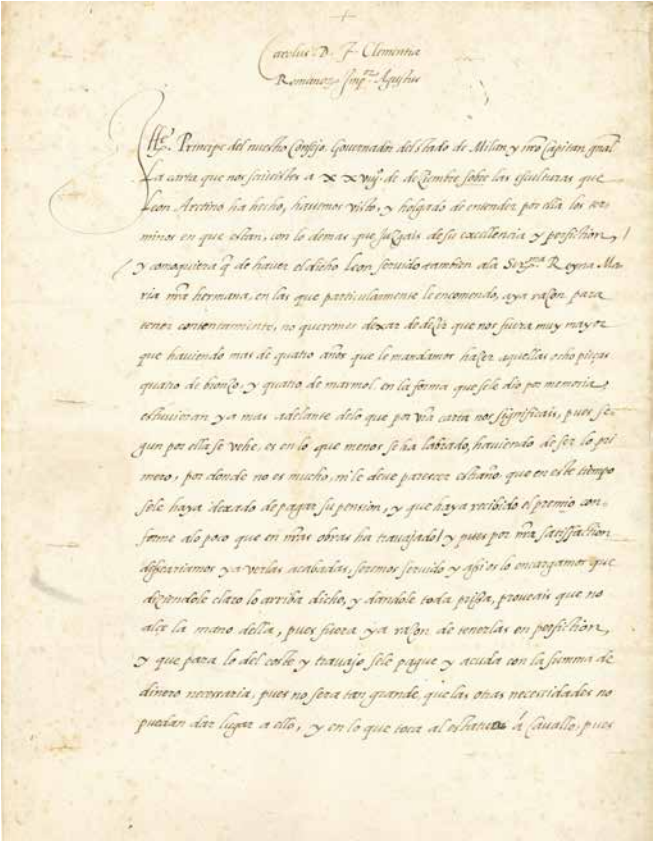 Carolus D. F. Clementia
Romanor. Impr. Agustus
Ille. Principe del nuestro Consejo. Governador del stado de Milan y nro Capitan gnal
La carta que nos scrivistes a XXVIIJ. de deziembre sobre las esculturas que
Leon Aretino ha hecho, havemos visto, y holgado de entender por ella los ter
minos en que estan, con lo demas que juzgais de su excellencia y perfiction,
y comoquiera q̃ de haver el dicho Leon servido tambien ala Serma. Reyna Ma-
ria nra hermana, en las que particularmente le encomendo, aya razon para
tener contentamiento, no queremos dexar de dezir que nos fuera muy mayor
que haviendo mas de quatro años que le mandamos hazer aquellas ocho pieças
quatro de bronzo, y quatro de marmol. en la forma que se le dio por memoria,
estuvieran ya mas adelante delo que por vra carta nos significais, pues se-
gun por ella se vehe, es en lo que menos se ha labrado, haviendo de ser lo pri
mero, por donde no es mucho, ni le deve parescer estraño, que en este tiempo
se le haya dexado de pagar su pension, y que haya recibido el premio con-
forme alo poco que en nras obras ha travajado/ y pues por nra satisfaction
desseariamos ya verlas acabadas, seremos servido y assi os lo encargamos que
diziendole claro lo arriba dicho, y dandole toda prissa, proveais que no
alçe la mano della, pues fuera ya razon de tenerlas en perfiction,
y que para lo del coste y travajo se le pague y acuda con la summa de
dinero necessaria, pues no sera tan grande que las otras necessidades no
puedan dar lugar a ello, y en lo que toca al estatua á Cavallo, pues